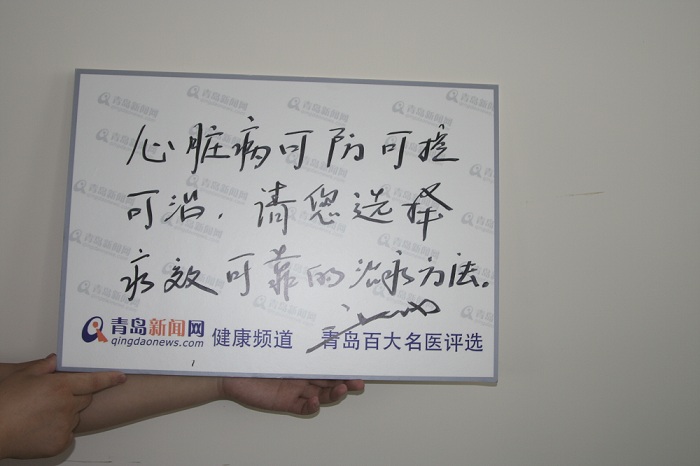 心脏病可防可控
可治，请您选择
疗效可靠的治疗方法。
青岛新闻网
qingdaonews.com
健康频道
青岛百大名医评选